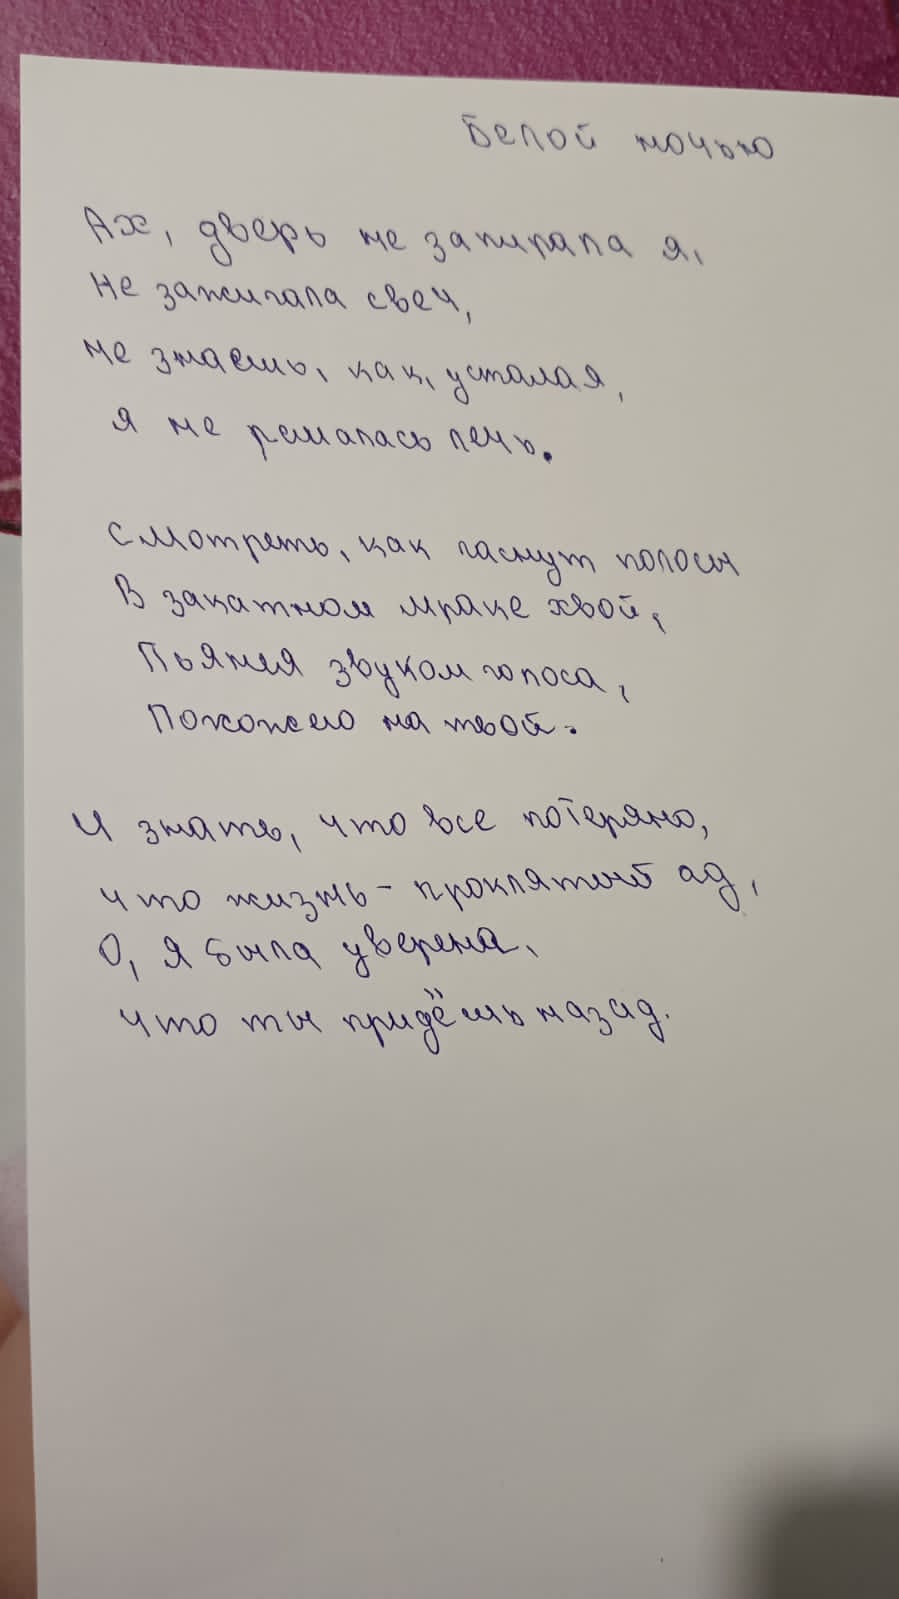 Белой ночью
Ах, дверь не запирала я,
Не зажигала свеч,
не знаешь, как, усталая,
я не решалась лечь.
Смотреть, как гаснут полосы
В закатном мраке хвой,
Пьянея звуком голоса,
Похожего на твой.
И знать, что все потеряно,
что жизнь - проклятый ад,
О, я была уверена,
что ты придёшь назад.